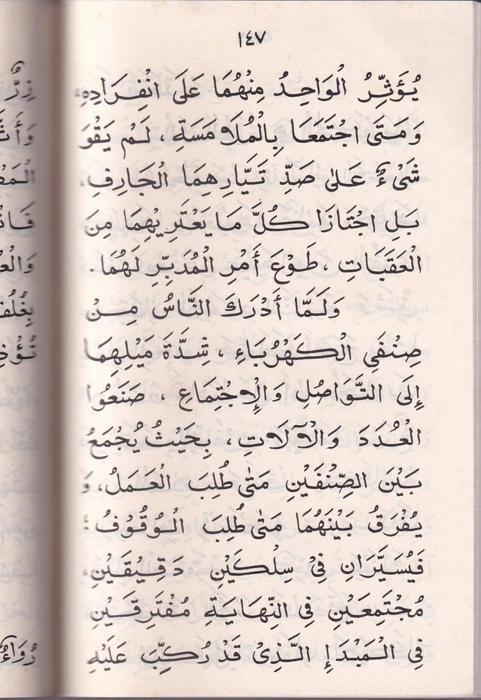 ١٤٧
يُؤَثِّرُ الْوَاحِدُ مِنْهُمَا عَلَى انْفِرَادِهِ،
وَمَتَى اجْتَمَعَا بِالْمُلَامَسَةِ، لَمْ يَقْوَ
شَىْءٌ عَلىٰ صَدِّ تَيَّارِهِمَا الْجَارِفِ،
بَلِ اجْتَازَا كُلَّ مَا يَعْتَرِيْهِمَا مِنَ
الْعَقَبَاتِ، طَوْعَ أَمْرِ الْمُدَبِّرِ لَهُمَا.
وَلَمَّا أَدْرَكَ النَّاسُ مِنْ
صِنْفَىِ الْكَهْرُبَاءِ، شِدَّةَ مَيْلِهِمَا
إِلَى التَّوَاصُلِ وَالْاِجْتِمَاعِ، صَنَعُوا
الْعُدَدَ وَالْآلَاتِ، بِحَيْثُ يُجْمَعُ
بَيْنَ الصِّنْفَيْنِ مَتىٰ طُلِبَ الْعَمَلُ، وَ
يُفْرَقُ بَيْنَهُمَا مَتىٰ طُلِبَ الْوُقُوْفُ؛
فَيُسَيَّرَانِ فِىْ سِلْكَيْنِ دَقِيْقَيْنِ،
مُجْتَمِعَيْنِ فِى النِّهَايَةِ مُفْتَرِقَيْنِ
فِى الْمَبْدَإِ الَّذِىْ قَدْ رُكِّبَ عَلَيْهِ